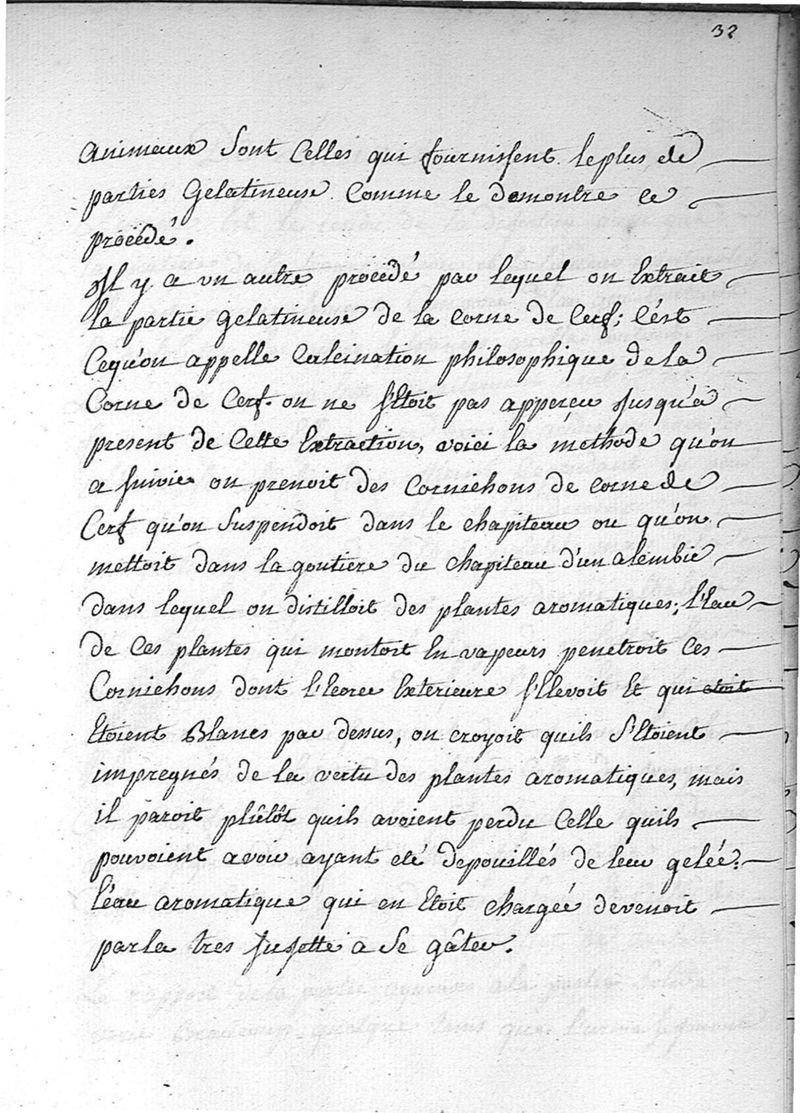 32
animeaux sont celles qui fournissent le plus de
parties gelatineuse. Comme le demontre ce
procédé.
Il y a un autre procedé par lequel on Extrait
la partie gelatineuse de la corne de Cerf; C'ést
Cequ'on appelle Calcination philosophique de la
Corne de Cerf. on ne s'Etoit pas apperçu Jusqu'a
present de Cette Extraction, voici la méthode qu'on
a suivie on prenoit des Cornichons de corne de
Cerf qu'on Suspendoit dans le chapiteau ou qu'on
mettoit dans la goutiere du chapiteau d'un alembic
dans lequel on distilloit des plantes aromatiques; l'Eau
de Ces plantes qui montoit En vapeurs penetroit Ces
Cornichons dont l'Ecorce Exterieure s'Elevoit Et qui etoit
Etoient Blancs par dessus, on croyoit quils S'Etoient
impregnés de la vertu des plantes aromatiques, mais
il paroit plûtôt quils avoient perdu Celle quils
pouvoient avoir ayant eté depouillés de leur geleé.
l'éau aromatique qui en Etoit chargeé devenoit
par la tres sujette a Se gâter.